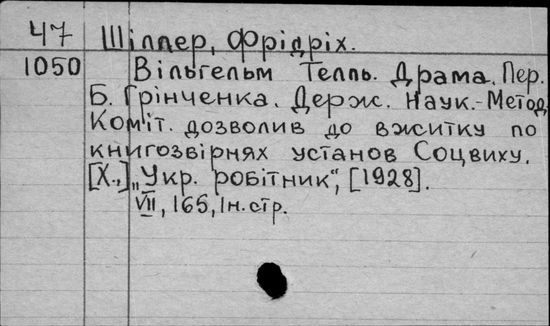 47 Шіллер, Фрідріх.
1050 Вільгельм Телль. Драма. Пер.
Б. Грінченка. Держ. Наук.-Метод.
Коміт. дозволив до вжитку по
книгозвірнях установ Соцвиху.
[Х.,] „Укр. робітник“, [1928].
VII, 165, Ін. стр.